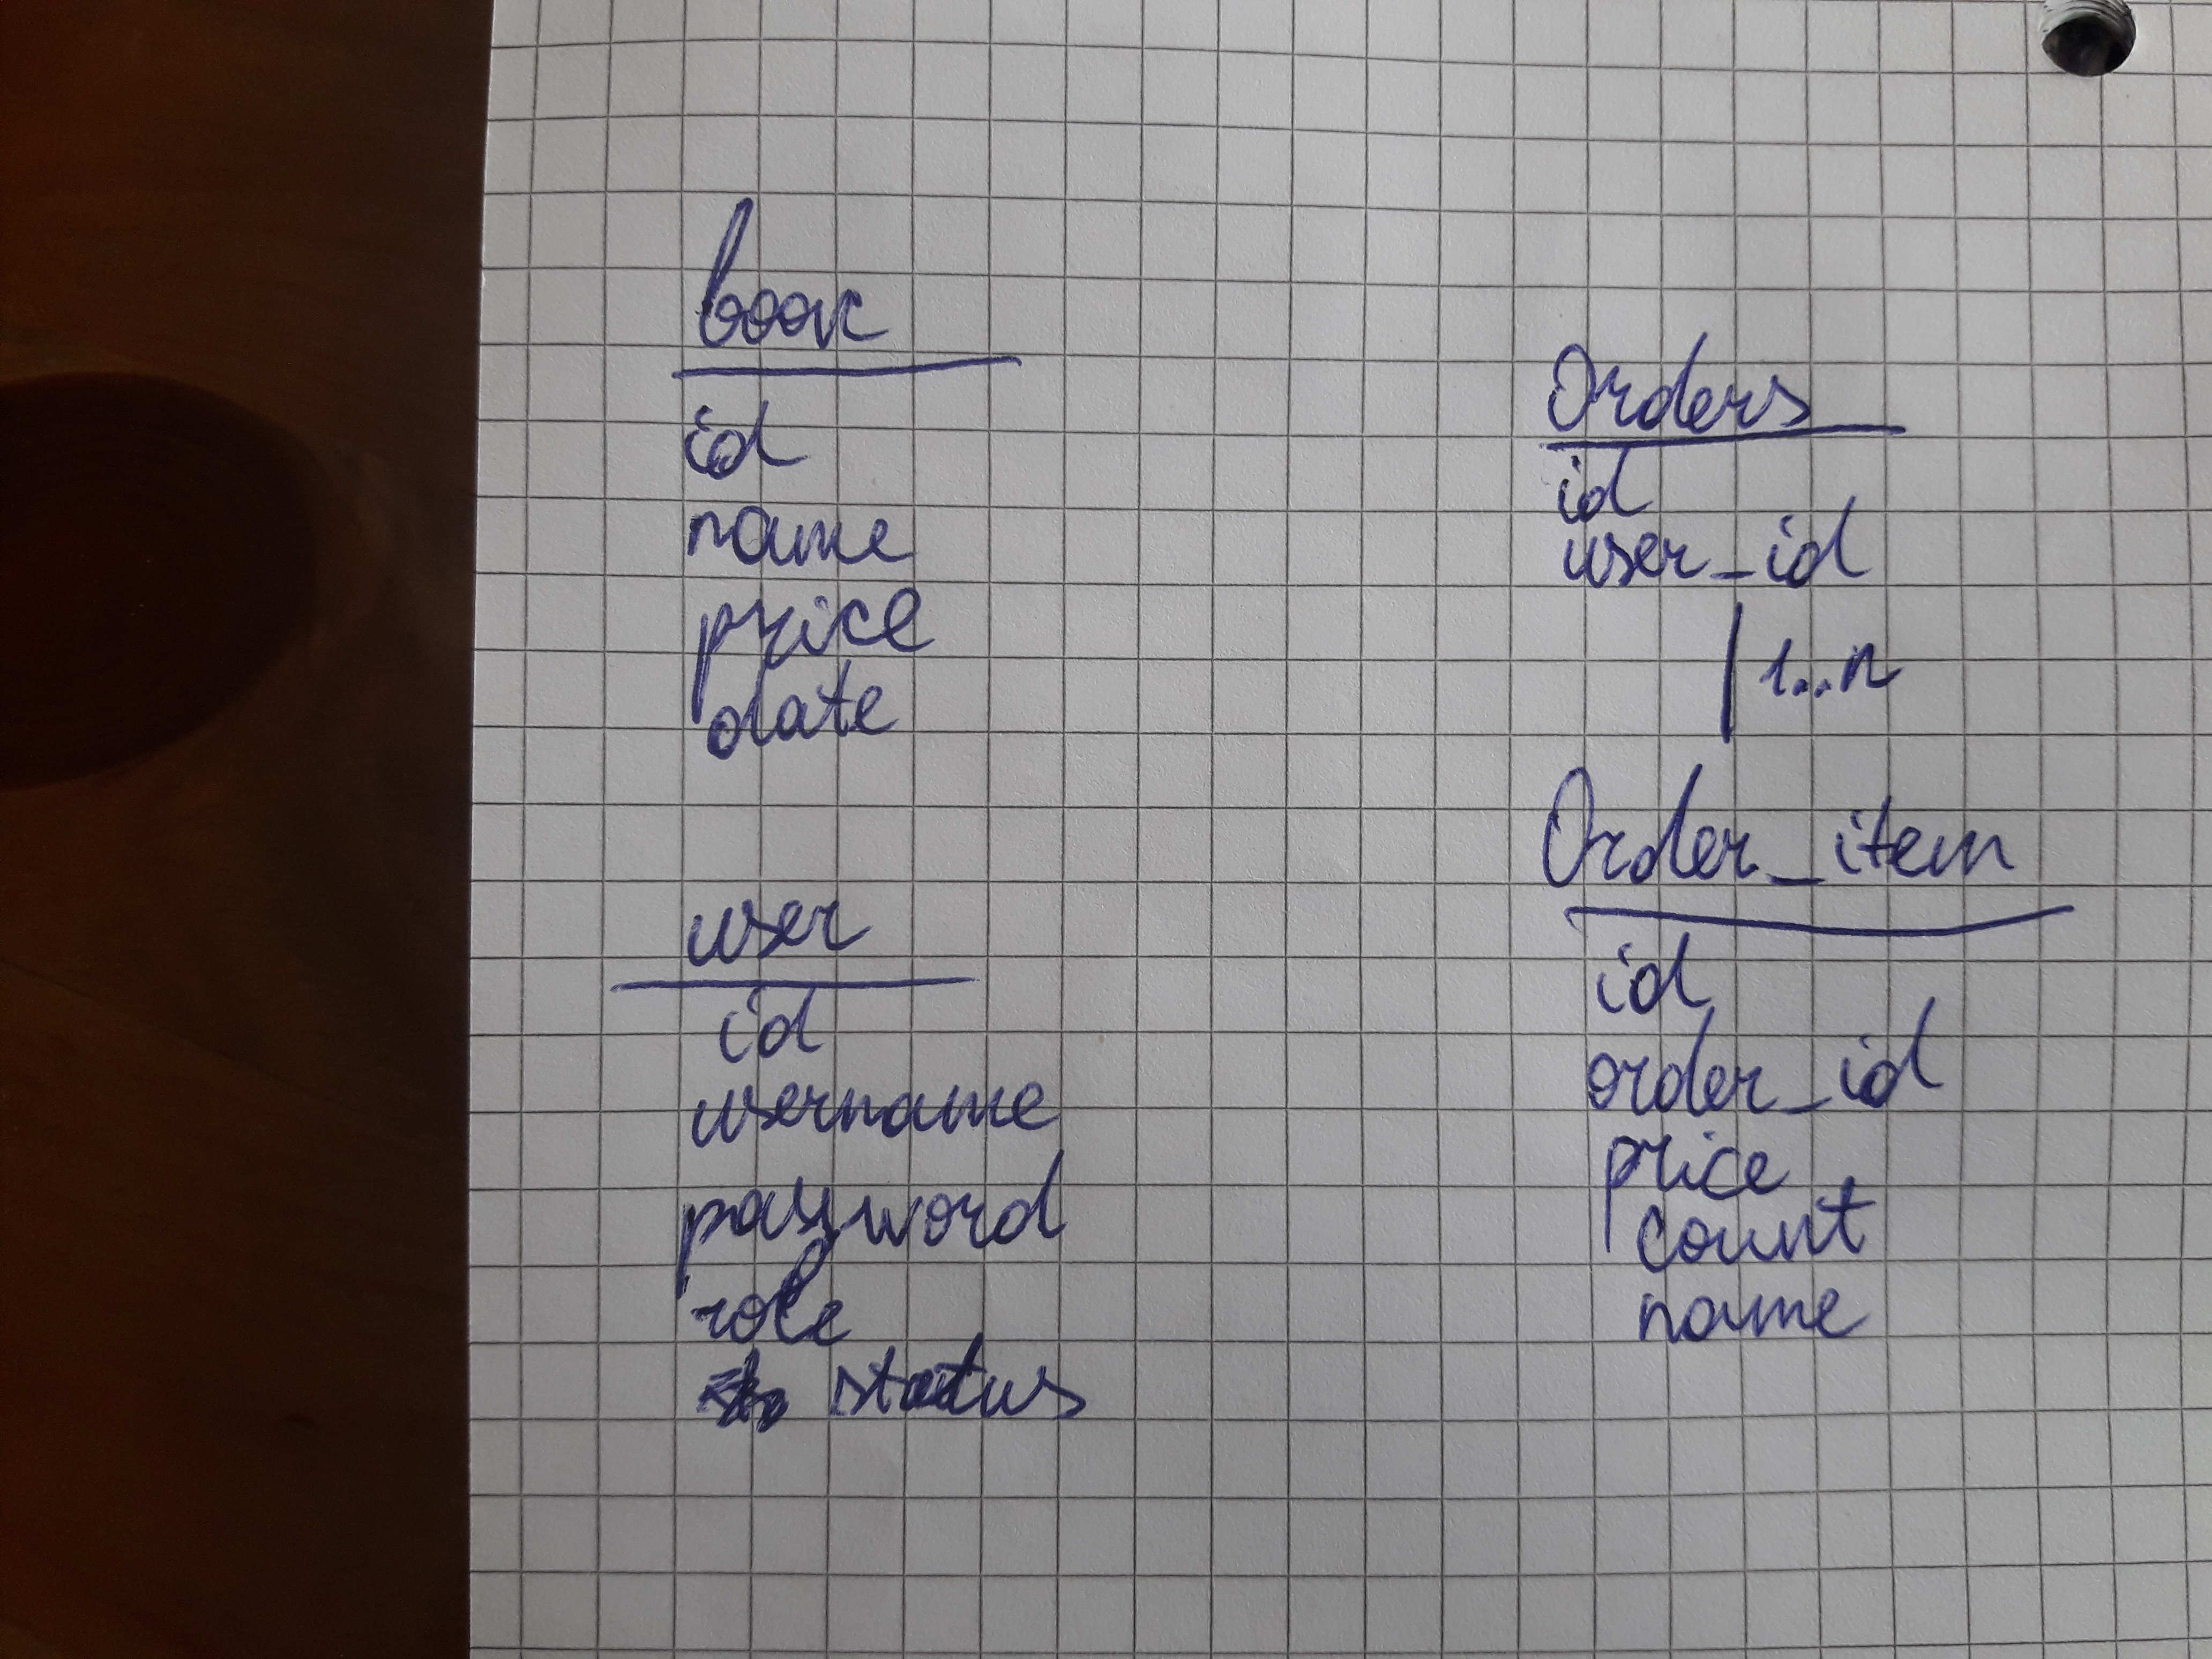 book
id
name
price
date
user
id
username
password
role
status
Orders
id
user_id
1..n
Order_item
id
order_id
price
count
name